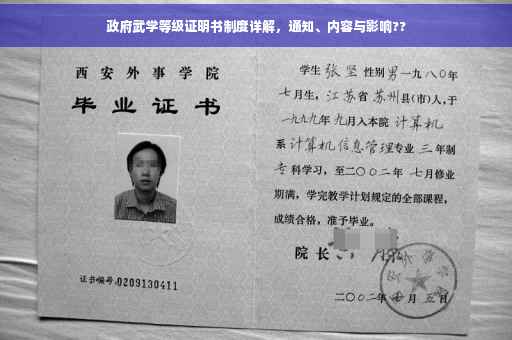 政府武学等级证明书制度详解，通知、内容与影响??
西安外事学院
毕业证书
证书编号:0209130411
学生张坚性别男一九八〇年
七月生，江苏省苏州县(市)人，于
一九九九年九月入本院计算机
系计算机信息管理专业三年制
专科学习，至二〇〇二年七月修业
期满，学完教学计划规定的全部课程，
成绩合格，准予毕业。
院长
二〇〇二年七月五日